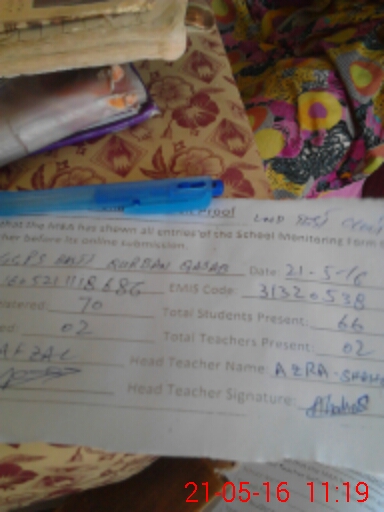 Proof
that the MEA has shown all entries of the School Monitoring Form
her before its online submission.
GGPS BASTI QURBAN Date: 21-5-16
EMIS Code: 31320538
istered: 70 Total Students Present: 66
ed: 02 Total Teachers Present: 02
AFZAL Head Teacher Name: AZRA
Head Teacher Signature:
21-05-16 11:19